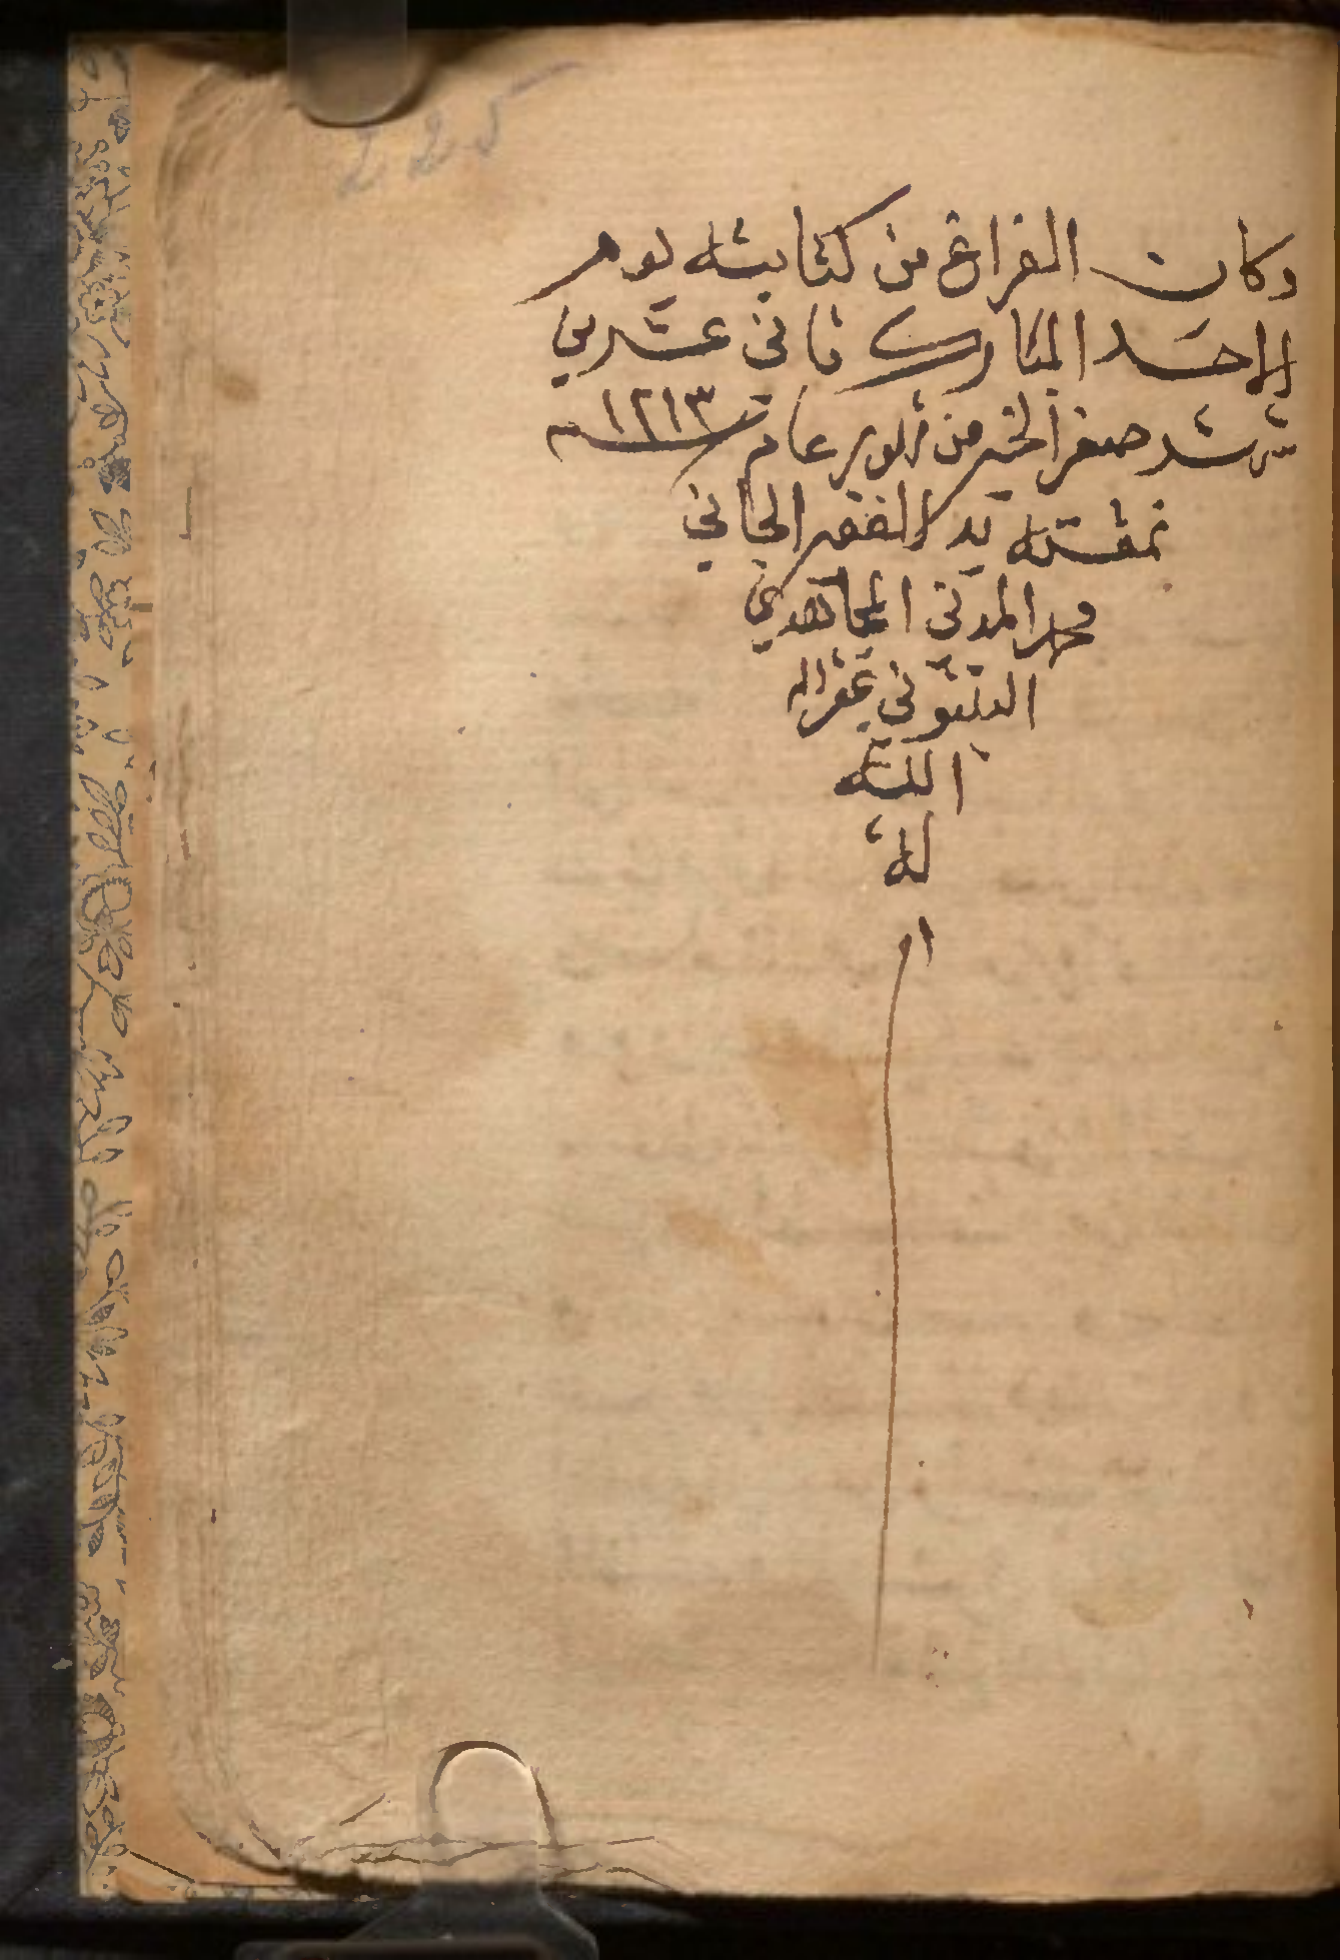 225
وكان الفراغ من كتابته يوم
الاحد المبارك ثاني عشرين
شهر صفر الخير من شهور عام ١٢١٣
نمقته يد الفقير الجاني
محمد المدني المجاهدي
غفر الله
الله
له